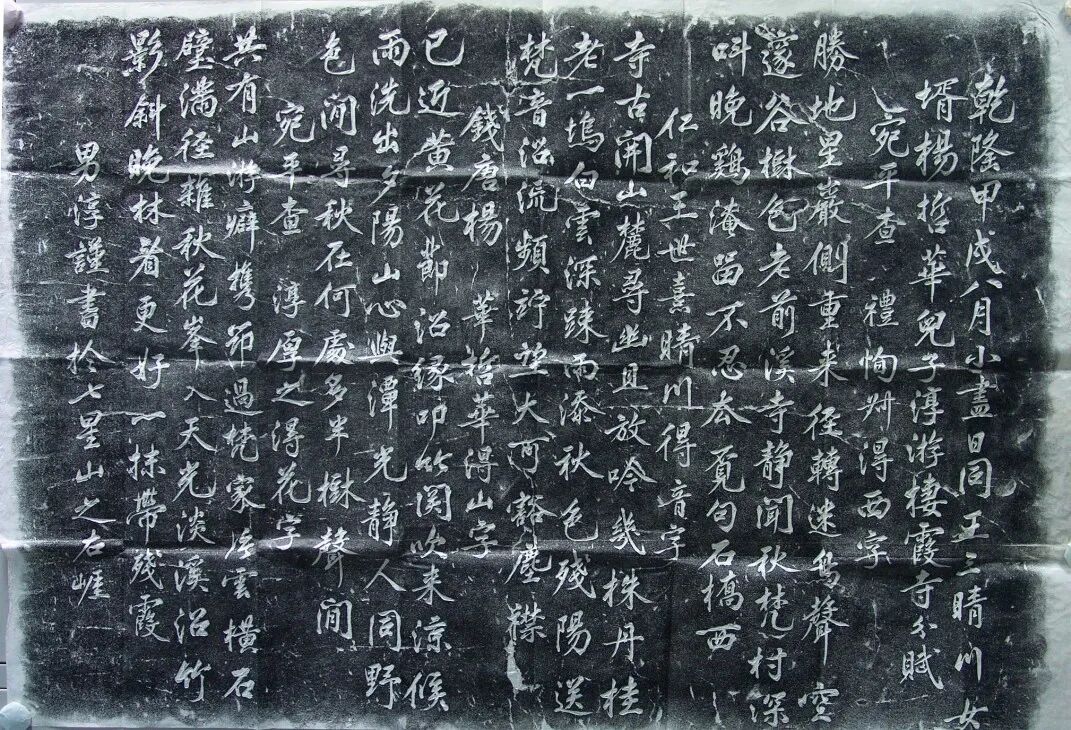 乾隆甲戌八月小盡日同王三晴川女
壻楊哲華兒子淳游棲霞寺分賦
宛平查 禮恂叔得西字
勝地星巖側重来徑轉迷鳥聲空
邃谷樹色老前溪寺静聞秋梵村深
叫晚鷄淹留不忍去覓句石橋西
仁和王世熹晴川得音字
寺古開山麓尋幽且放吟幾株丹桂
老一塢白雲深踈雨添秋色殘陽送
梵音沿流頻竚望大可豁塵襟
錢唐楊 華哲華得山字
已近黄花莭沿緣叩竹関吹来涼候
雨洗出夕陽山心與潭光静人同野
色閒尋秋在何處多半樹聲間
宛平查 淳厚之得花字
共有山游癖携笻過梵家浮雲橫石
壁满徑雜秋花峯入天光淡溪沿竹
影斜晚林看更好一抹帶殘霞
男淳謹書於七星山之右崕